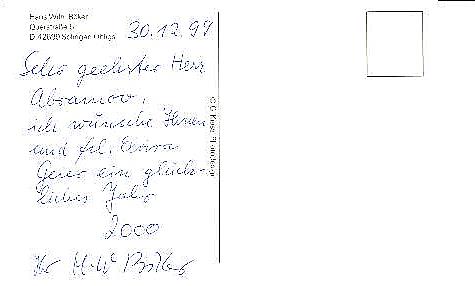 Hans Wilh. Böker
Querstraße 5
D-42699 Solingen-Ohligs
30.12.99
Sehr geehrter Herr
Abramov,
ich wünsche Ihnen
und frl.
ein glück-
liches Jahr
2000
Ihr H-W Böker